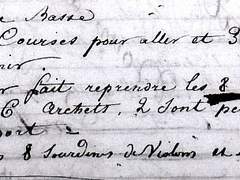 e Basse
Courses pour aller et 3
ner.
r fait reprendre les 8
E Archets, 2 sont pe
port =
s 8 Sourdines de Violons et